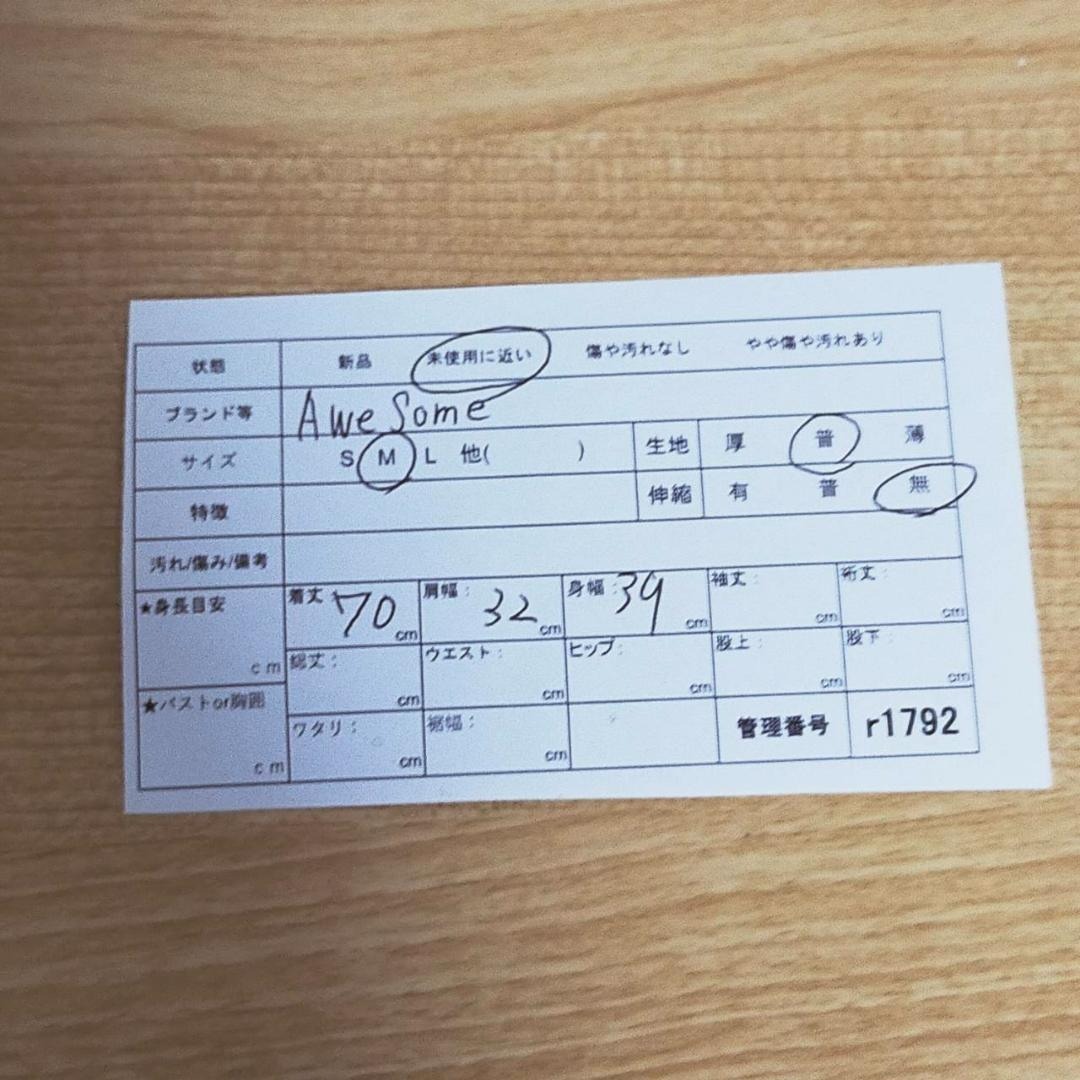 状態 新品 未使用に近い 傷や汚れなし やや傷や汚れあり
ブランド等 AweSome
サイズ S M L 他( ) 生地 厚 普 薄
特徴 伸縮 有 普 無
汚れ/傷み/備考
★身長目安 cm 着丈 70 cm 肩幅: 32 cm 身幅: 39 cm 袖丈: cm 裄丈: cm
総丈: cm ウエスト: cm ヒップ: cm 股上: cm 股下 cm
★バストor胸囲 cm ワタリ: cm 裾幅: cm 管理番号 r1792